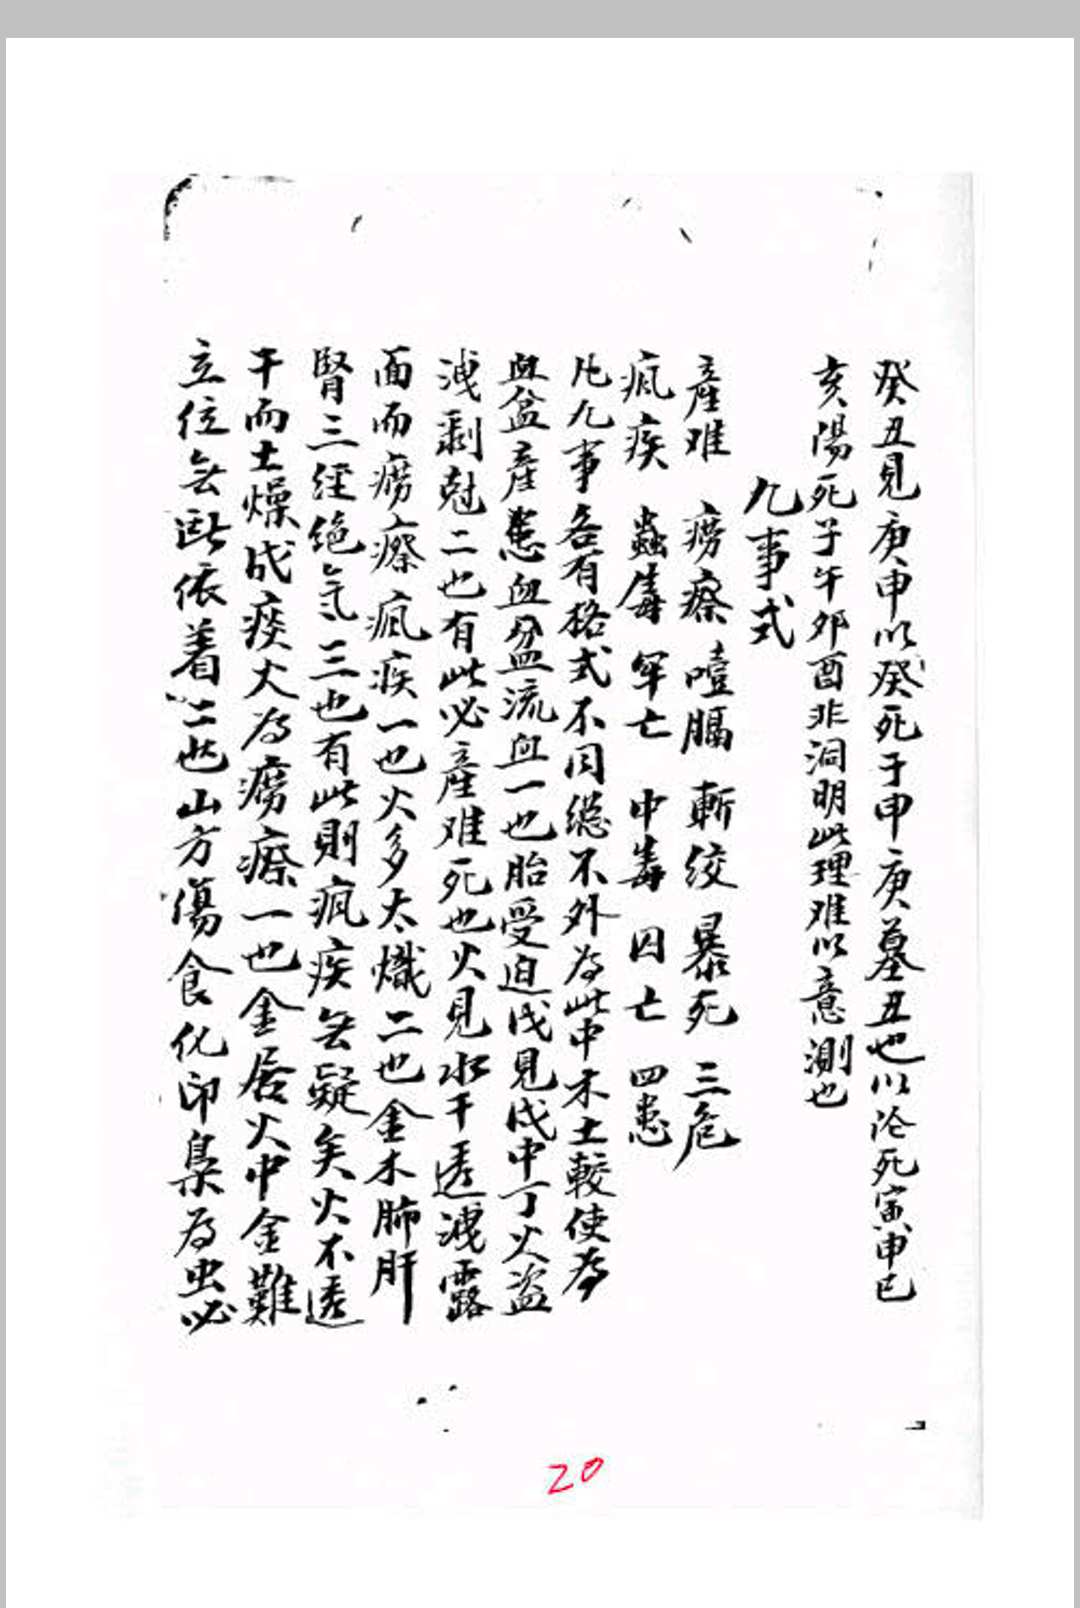 癸丑見庚申以癸死于申庚墓丑也以论死寅申巳
亥陽死子午卯酉非洞明此理难以意測也
九事式
產难 痨瘵 噎膈 斬绞 暴死 三危
疯疾 蟲毒 军亡 中毒 囚亡 四患
凡九事各有格式不同總不外為此中木土較使為
血盆產患血盆流血一也胎受迫戊見戊中丁火盜
洩剩尅二也有此必產难死也火見水干透洩露
面而痨瘵疯疾一也火多太熾二也金木肺肝
腎三經绝氣三也有此則疯疾無疑矣火不透
干而土燥成痰火為痨瘵一也金居火中金難
立位無依着二也山方傷食化印梟為虫必
20